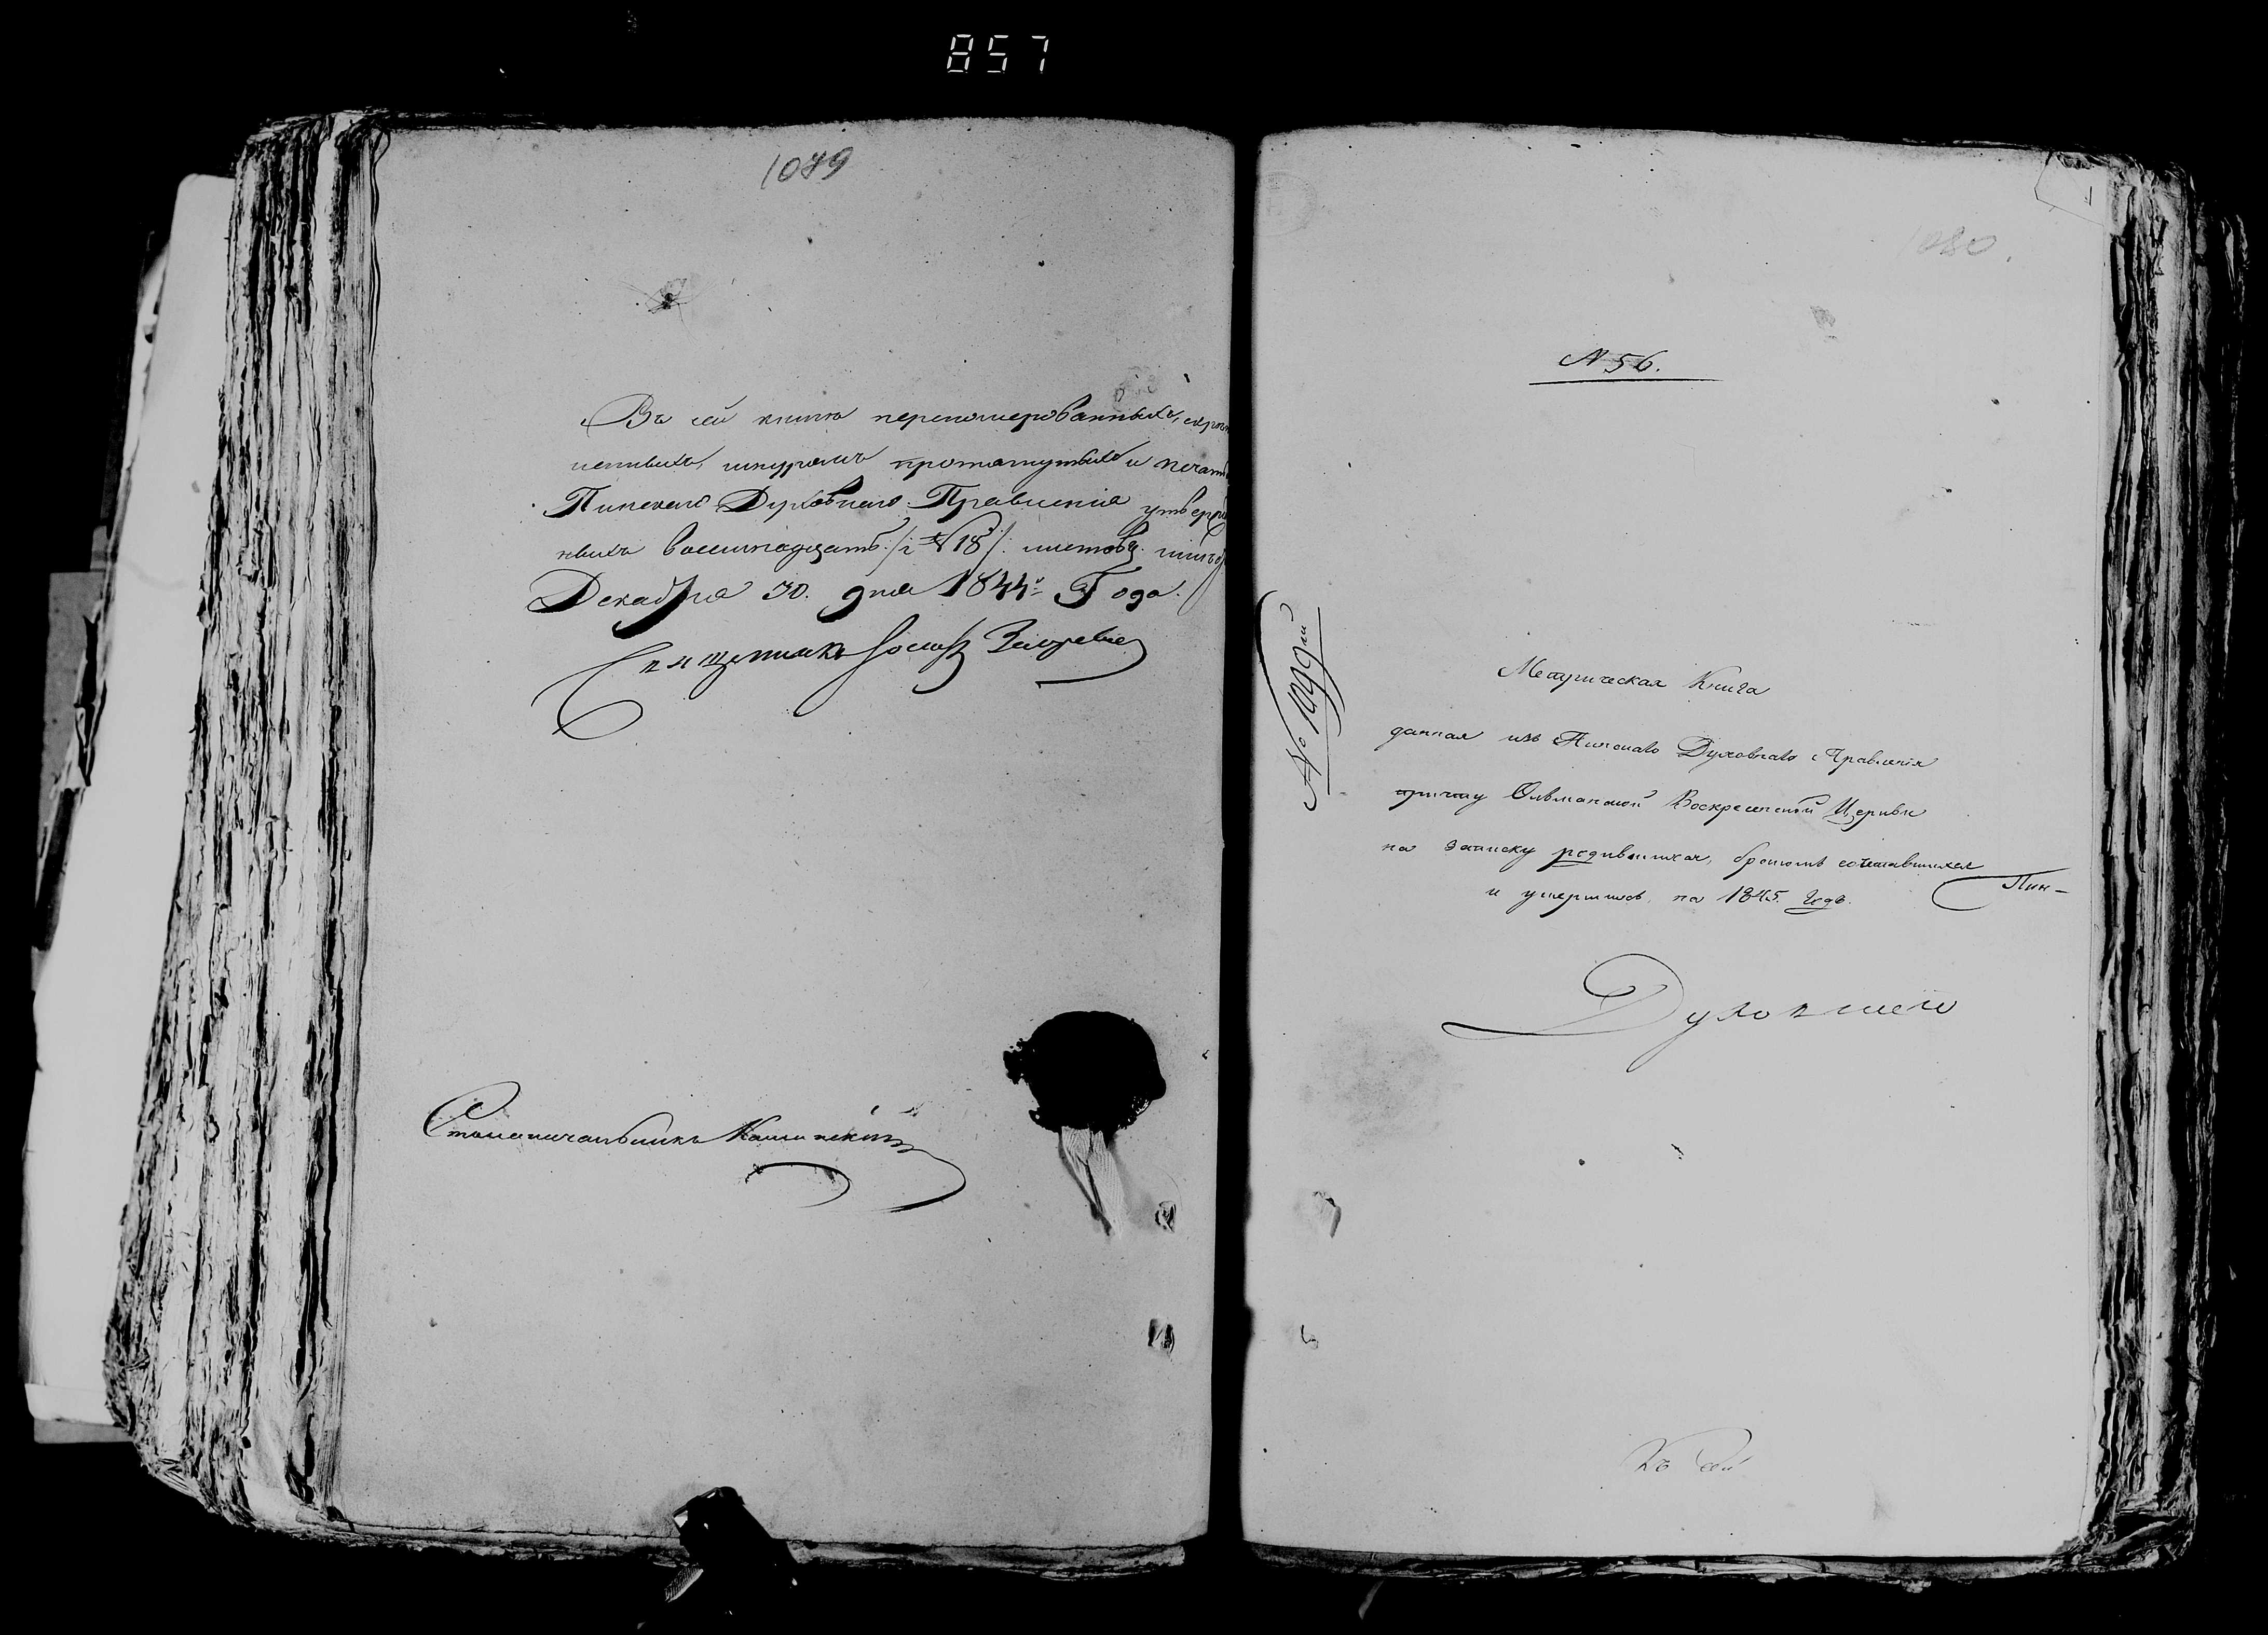 857
1079
Въ сей книгѣ переномерованныхъ, скрѣп
ленныхъ, шнуромъ протянутыхъ и печатью
Пинскаго Духовнаго Правленія утвержд
нныхъ восимнадцать /: № 18 :/ листовъ.
Декабря 30. дня 1844го Года.
Священникъ Іосифъ
Столоначальникъ
1080.
1
N 56.
Метрическая Книга
данная изъ Пинскаго Духовнаго Правленія
причту Ольманской Воскресенской Церкви
на записку родившихся, бракомъ сочетавшихся
и умершихъ, на 1845. Годъ.
Пин-
Духовнаго
Къ сей